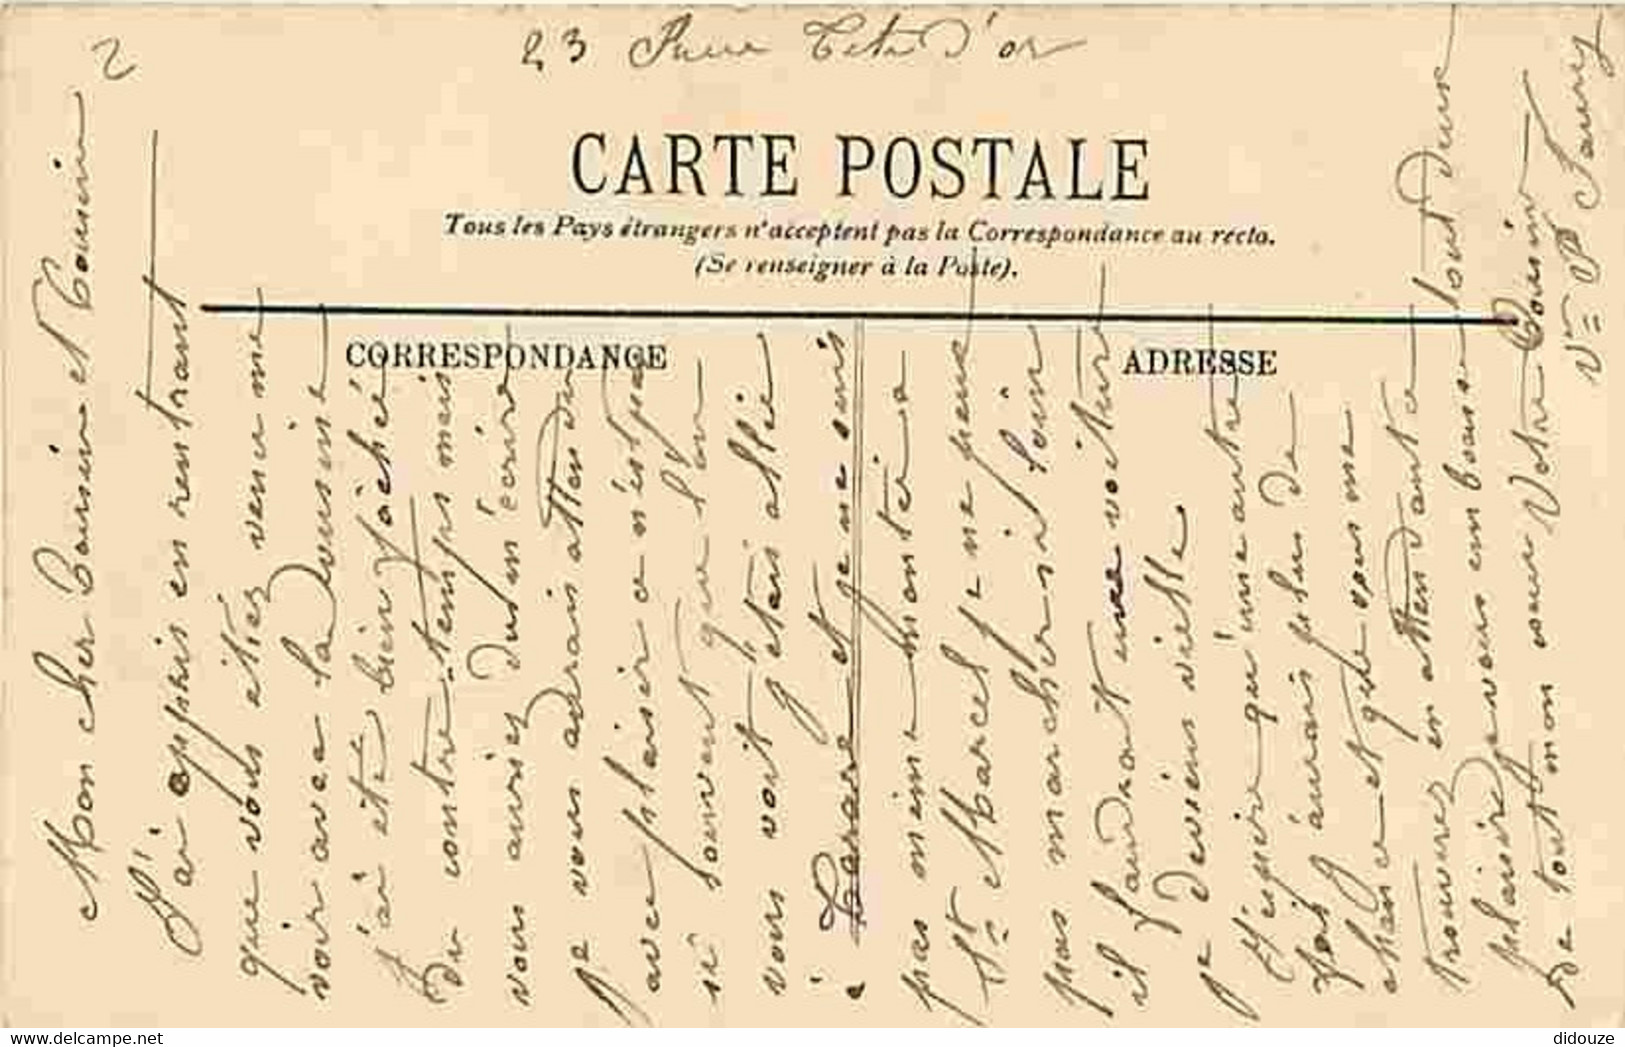 2
23 Rue Tete D'or
CARTE POSTALE
Tous les Pays étrangers n'acceptent pas la Correspondance au recto.
(Se renseigner à la Poste).
CORRESPONDANCE
ADRESSE
Mon cher Cousin et Cousine
J'ai appris en rentrant
que vous etiez venu me
voir avec la Cousine
j'ai été bien fâché
du contre-temps mais
vous auriez du m'écrire
je vous aurais attendu
avec plaisir ce n'est pas
si souvent que l'on
vous voit j'étais allé
à Tarare et je ne suis
pas même monté a
St Marcel je ne peux
pas marcher si loin
il faudrait une voiture
je deviens vielle
J'espère qu'une autre
fois j'aurais plus de
chance et que vous me
trouverez en attendant ce
plaisir je vous embrasse tout deux
De tout mon coeur Votre Cousine
Vve
didouze